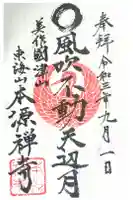 奉拝 令和三年九月一日
風吹不動天辺月
美作國津山
東海山 本源禅寺